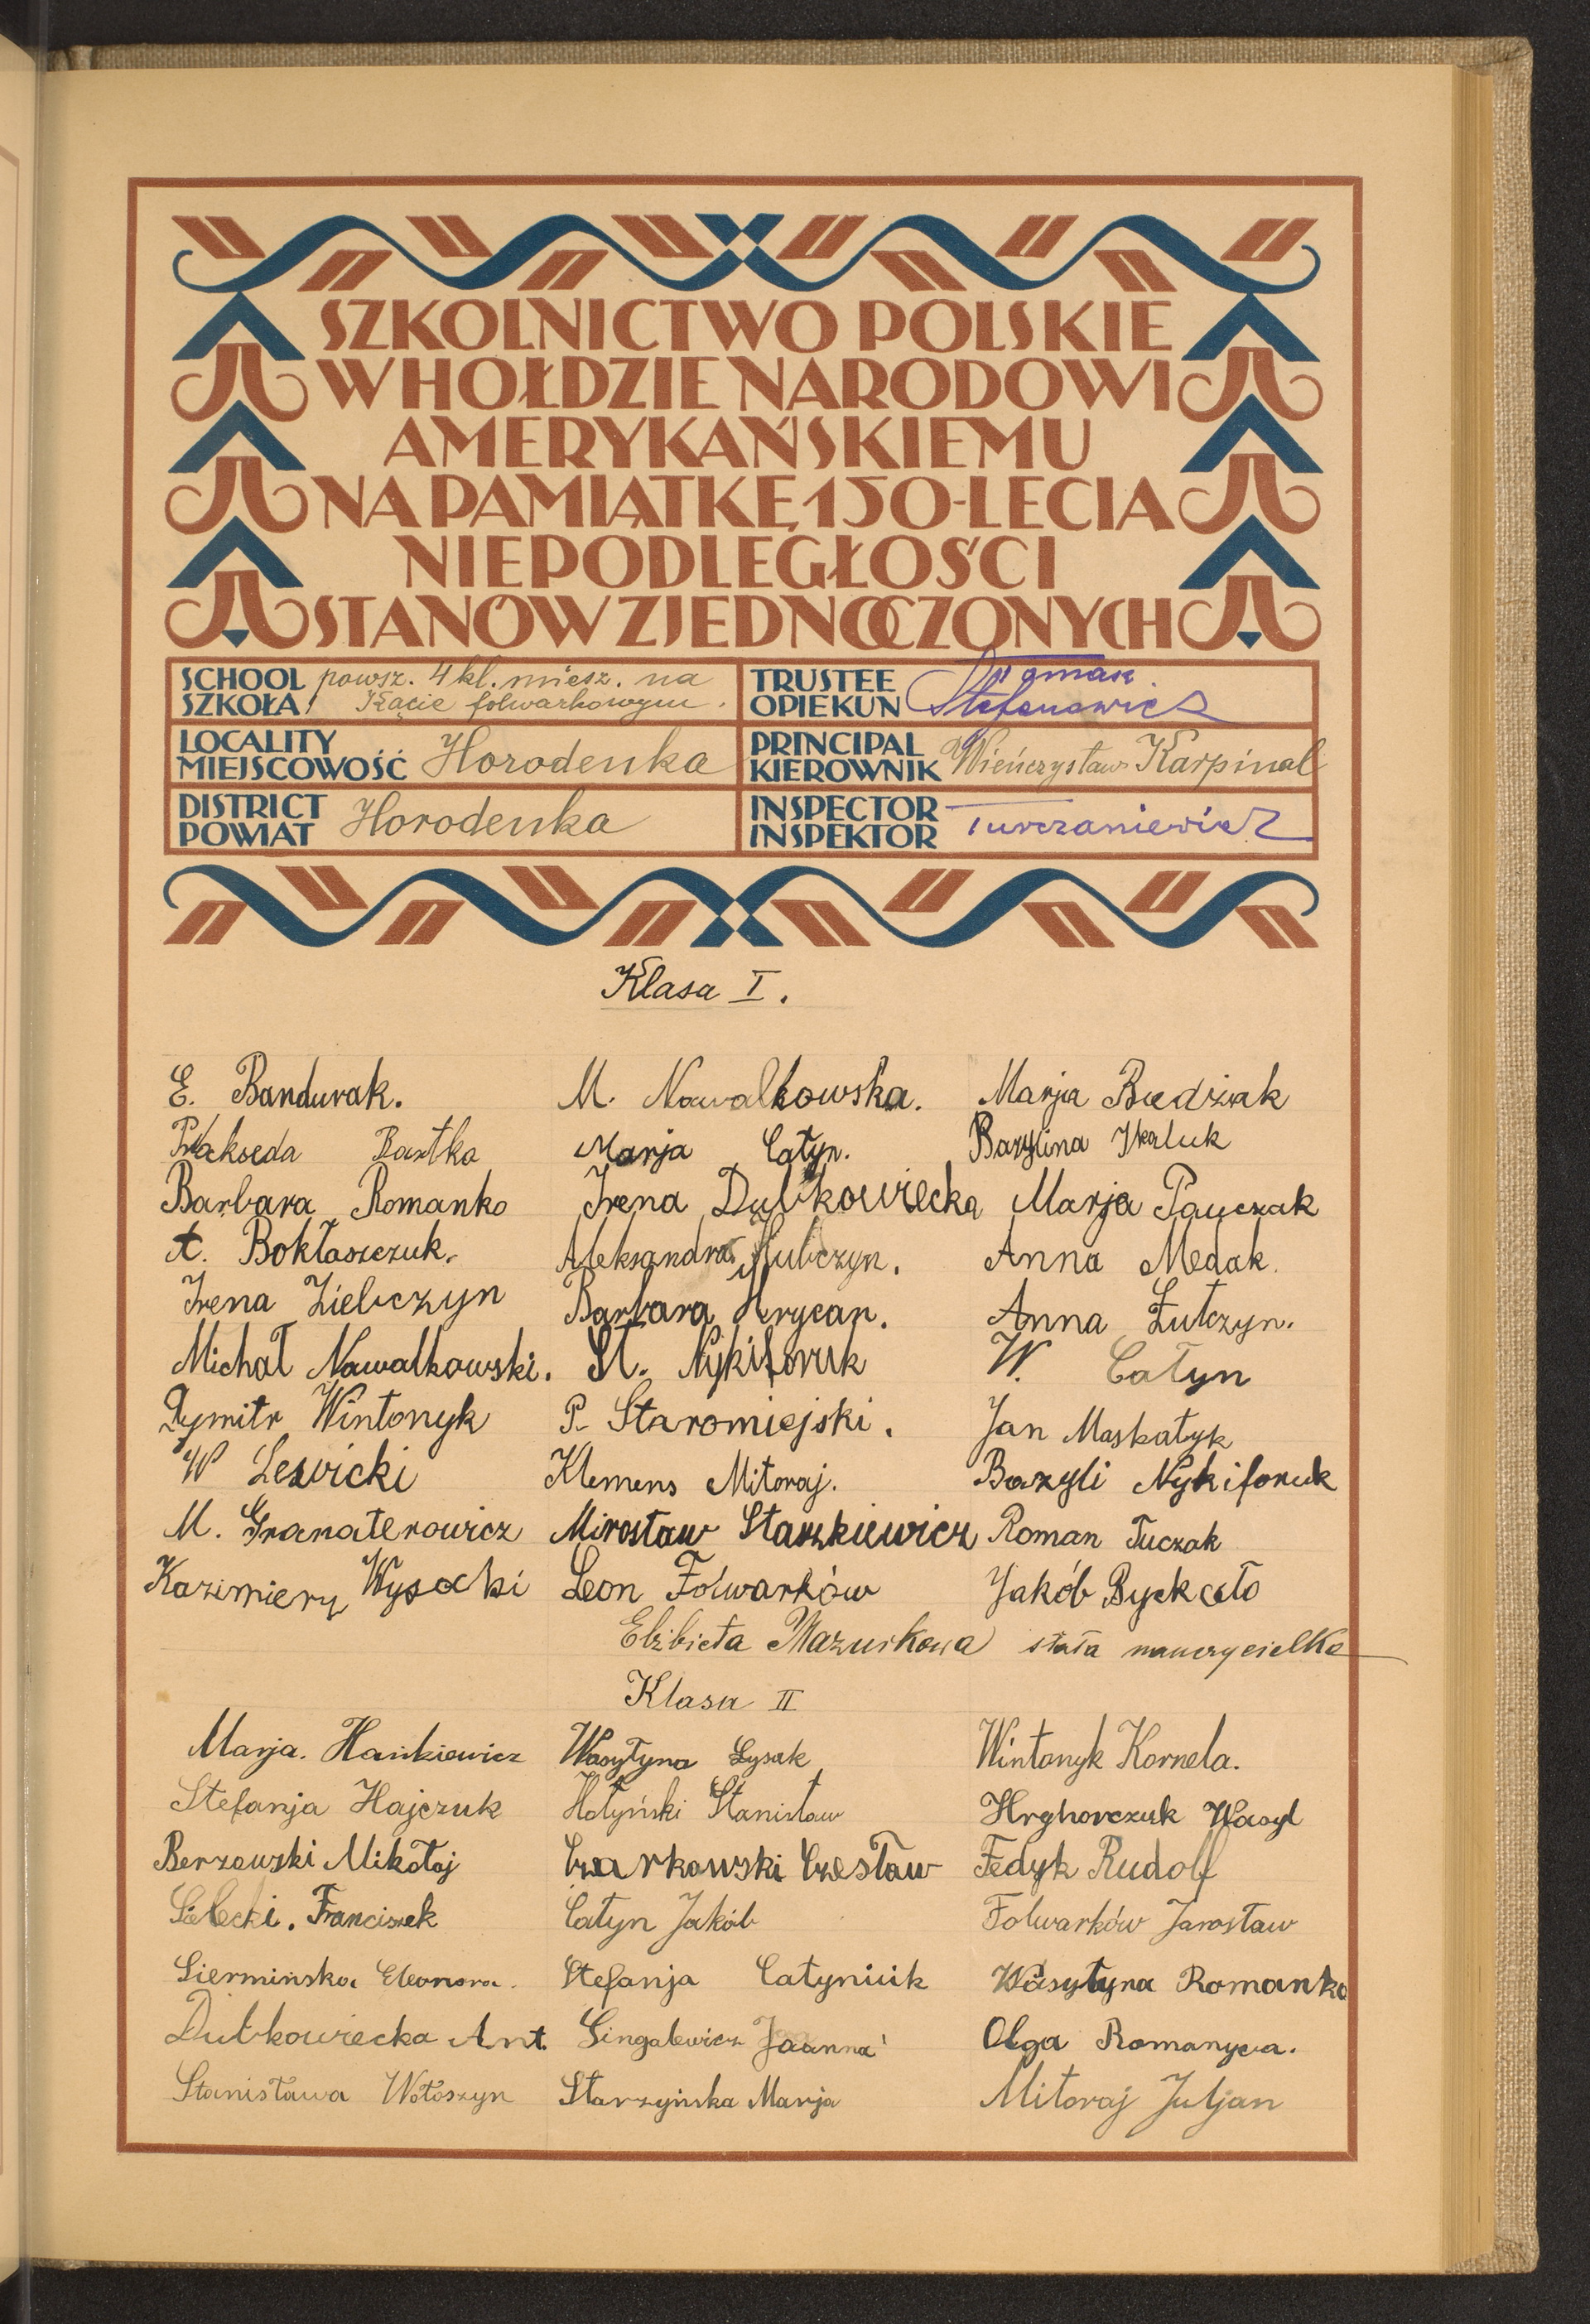 SZKOLNICTWO POLSKIE
W HOŁDZIE NARODOWI
AMERYKAŃSKIEMU
NA PAMIĄTKĘ 150-LECIA
NIEPODLEGŁOŚCI
STANÓW ZJEDNOCZONYCH
SCHOOL powsz. 4 kl. miesz. na
SZKOŁA Kącie folwarkowym.
TRUSTEE Tomasz
OPIEKUN Stefanowicz
LOCALITY
MIEJSCOWOŚĆ Horodenka
PRINCIPAL
KIEROWNIK Wieńczysław Karpinal
DISTRICT
POWIAT Horodenka
INSPECTOR
INSPEKTOR Turczaniewicz
Klasa I.
E. Bandurak. M. Nawalkowska. Marja Budziak
Prakseda Bartko Marja Całyn. Bazylina
Barbara Romanko Irena Dubkowiecka Marja Pauczak
A. Bokłaszczuk. Aleksandra Hubczyn. Anna Medak.
Irena Zielczyn Barbara Hrycan. Anna Łutczyn.
Michał Nawalkowski. St. Nykiforuk W. Całyn
Dymitr Wintonyk P. Staromiejski. Jan Maskałyk
W Lewicki Klemens Mitoraj. Bazyli Nykiforuk
M. Granaterowicz Mirosław Staszkiewicz Roman Tuczak
Kazimierz Wysocki Leon Folwarków Jakób
Elżbieta Mazurkowa stała nauczycielka
Klasa II
Marja. Hankiewicz Wasyłyna Łysak Wintonyk Kornela.
Stefanja Hajczuk Hołyński Stanisław Hryhorczuk Wasyl
Berzowski Mikołaj Czarkowski Czesław Fedyk Rudolf
Sielecki. Franciszek Całyn Jakób Folwarków Jarosław
Siermińska Eleonora. Stefanja Całyniuk Wasyłyna Romanko
Dubkowiecka Ant. Singalewicz Joanna Olga Romanyca.
Stanisława Wołoszyn Starzyńska Marja Mitoraj Juljan